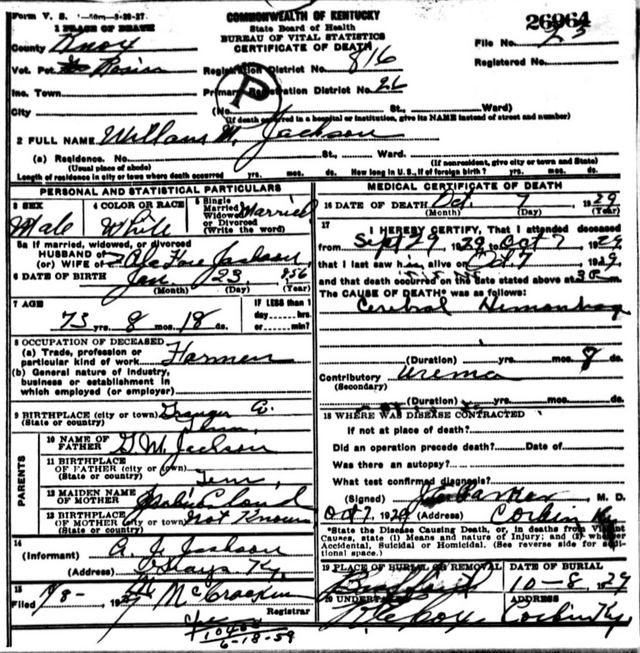 Form V. S.
COMMONWEALTH OF KENTUCKY
State Board of Health
BUREAU OF VITAL STATISTICS
CERTIFICATE OF DEATH
26964
1 PLACE OF DEATH
County Knox
File No. 25
Vot. Pct.
Registration District No. 816
Registered No.
Inc. Town
Primary Registration District No. 26
P
City
(No. St., Ward)
(If death occurred in a hospital or institution, give its NAME instead of street and number)
2 FULL NAME William W. Jackson
(a) Residence. No. St., Ward.
(Usual place of abode) (If nonresident, give city or town and State)
Length of residence in city or town where death occurred yrs. mos. ds. How long in U. S., if of foreign birth? yrs. mos. ds.
PERSONAL AND STATISTICAL PARTICULARS
3 SEX
Male
4 COLOR OR RACE
White
5 Single
Married
Widowed
or Divorced
(Write the word)
Married
5a If married, widowed, or divorced
HUSBAND OF
(or) WIFE of Jackson
6 DATE OF BIRTH Jan 23 856
(Month) (Day) (Year)
7 AGE
73 yrs. 8 mos. 18 ds.
IF LESS than 1
day hrs.
or min.?
8 OCCUPATION OF DECEASED
(a) Trade, profession or
particular kind of work Farmer
(b) General nature of industry,
business or establishment in
which employed (or employer)
9 BIRTHPLACE (city or town) Granger Co.
(State or country) Tenn.
PARENTS
10 NAME OF
FATHER G. W. Jackson
11 BIRTHPLACE
OF FATHER (city or town)
(State or country) Tenn.
12 MAIDEN NAME
OF MOTHER Cloud
13 BIRTHPLACE
OF MOTHER (city or town) Not Known
(State or country)
14
(Informant) Jackson
Ky.
15
Filed 1929 McCracken
Registrar
6-18-59
MEDICAL CERTIFICATE OF DEATH
16 DATE OF DEATH Oct. 7 1929
(Month) (Day) (Year)
17
I HEREBY CERTIFY, That I attended deceased
from Sept 29 1929 to Oct 7 1929
that I last saw him alive on Oct 7 1929
and that death occurred on the date stated above at 3 m.
The CAUSE OF DEATH* was as follows:
Cerebral Hemorrhag
(Duration) yrs. mos. 8 ds.
Contributory Urema
(Secondary)
(Duration) yrs. mos. ds.
18 WHERE WAS DISEASE CONTRACTED
If not at place of death?
Did an operation precede death? Date of
Was there an autopsy?
What test confirmed diagnosis?
(Signed) Parker M. D.
Oct 7, 1929 (Address) Corbin Ky
*State the Disease Causing Death, or, in deaths from Violent
Causes, state (1) Means and nature of Injury; and (2) whether
Accidental, Suicidal or Homicidal. (See reverse side for addi-
tional space.)
19 PLACE OF BURIAL OR REMOVAL
DATE OF BURIAL
10-8 1929
20 UNDERTAKER
ADDRESS
Corbin Ky